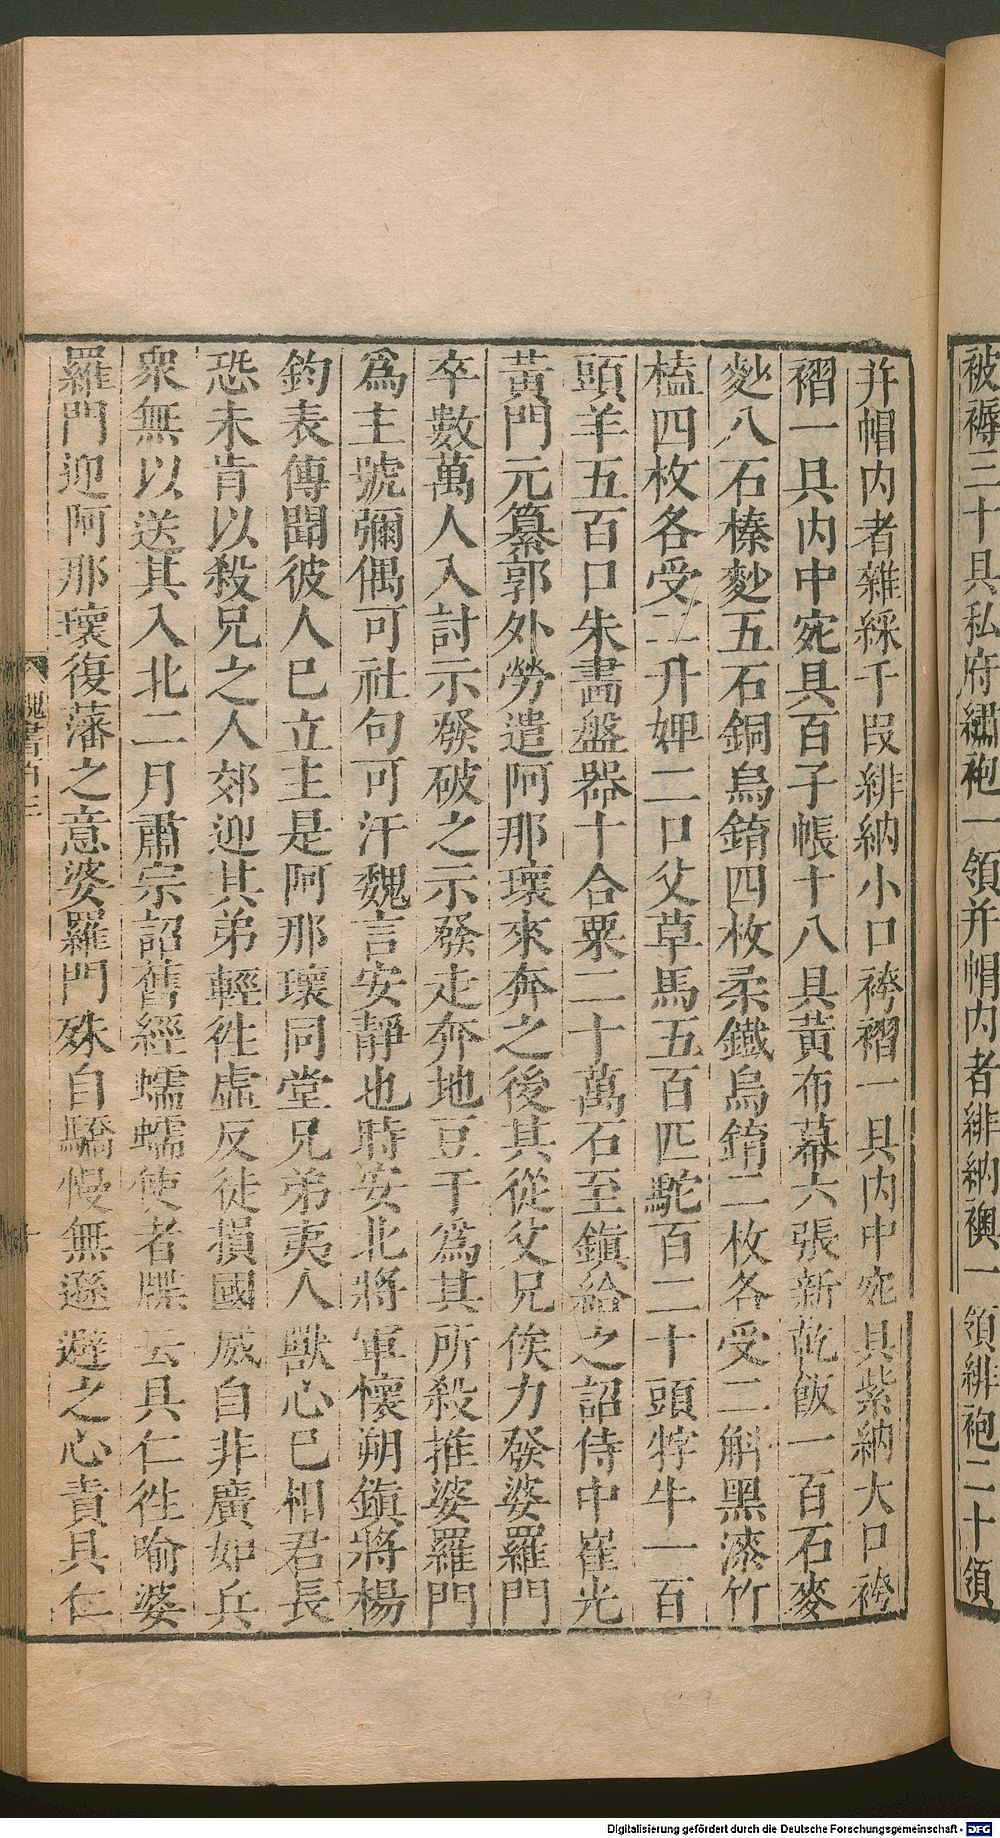 被褥三十具私府繡袍一領并帽内者緋納襖一領緋袍二十領
并帽内者雜綵千叚緋納小口袴褶一具内中宛具紫納大口袴
褶一具内中宛具百子帳十八具黃布幕六張新乾飯一百石麥
麨八石榛麨五石銅烏錥四枚柔鐵烏錥二枚各受二斛黑漆竹
榼四枚各受二升婢二口父草馬五百匹駝百二十頭牸牛一百
頭羊五百口朱畵盤器十合粟二十萬石至鎭給之詔侍中崔光
黃門元纂郭外勞遣阿那瓌來奔之後其從父兄俟力發婆羅門
卒數萬人入討示發破之示發走奔地豆于爲其所殺推婆羅門
爲主號彌偶可社句可汗魏言安靜也時安北將軍懷朔鎭將楊
鈞表傳聞彼人巳立主是阿那瓌同堂兄弟夷人獸心巳相君長
恐未肯以殺兄之人郊迎其弟輕徃虛反徒損國威自非廣加兵
衆無以送其入北二月肅宗詔舊經蠕蠕使者牒云具仁徃喻婆
羅門迎阿那瓌復藩之意婆羅門殊自驕慢無遜避之心責具仁
魏書
十
Digitalisierung gefördert durch die Deutsche Forschungsgemeinschaft - DFG